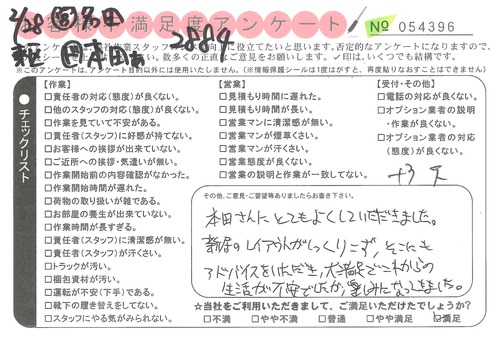 お客様不満足度アンケート
No 054396
2/28
2884
✓印は、いくつでも結構です。
※このアンケートは、アンケート目的以外には使用いたしません。(※情報保護シールは1度はがすと、再度貼りなおすことはできません)
●チェックリスト
【作業】
□責任者の対応(態度)が良くない。
□他のスタッフの対応(態度)が良くない。
□作業を見ていて不安がある。
□責任者(スタッフ)に好感が持てない。
□お客様への挨拶が出来ていない。
□ご近所への挨拶・気遣いが無い。
□作業開始前の内容確認がなかった。
□作業開始時間が遅れた。
□荷物の取り扱いが雑である。
□お部屋の養生が出来ていない。
□作業時間が長すぎる。
□責任者(スタッフ)に清潔感が無い。
□責任者(スタッフ)が汗くさい。
□トラックが汚い。
□梱包資材が汚い。
□運転が不安(下手)である。
□靴下の履き替えをしてない。
□スタッフにやる気がみられない。
【営業】
□見積もり時間に遅れた。
□見積もり時間が長い。
□営業マンに清潔感が無い。
□営業マンが煙草くさい。
□営業マンが汗くさい。
□営業態度が良くない。
□営業の説明と作業が一致してない。
【受付・その他】
□電話の対応が良くない。
□オプション業者の説明
・作業が良くない。
□オプション業者の対応
(態度)が良くない。
その他、ご意見・ご要望等ありましたらお書き下さい。
本田さんにとてもよくしていただきました。
新居のレイアウトがしっくりこず、そこにも
アドバイスをいただき、大満足でこれからの
生活が不安でしたが、楽しみになってきました。
☆当社をご利用いただきまして、ご満足いただけたでしょうか?
□不満 □やや不満 □普通 □やや満足 ☑満足